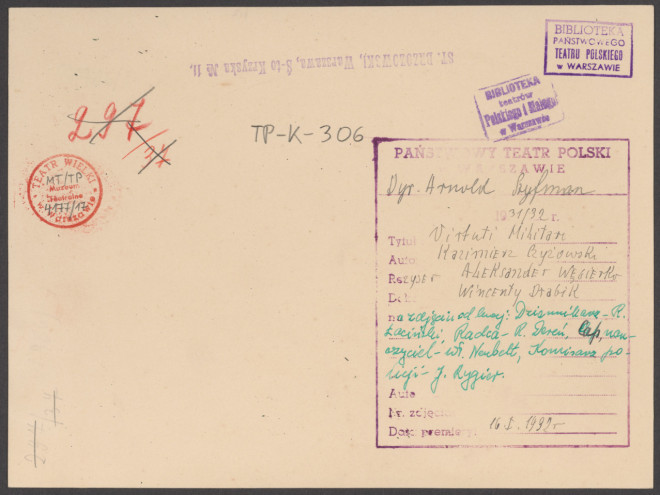 BIBLIOTEKA
PAŃSTWOWEGO
TEATRU POLSKIEGO
w WARSZAWIE
ST. BRZOZOWSKI, Warszawa, S-to Krzyska № 11.
BIBLIOTEKA
teatrów
Polskiego i Małego
w Warszawie
297/
TP-K-306
TEATR WIELKI
MT/TP
Muzeum
Teatralne
w Warszawie
PAŃSTWOWY TEATR POLSKI
W WARSZAWIE
Dyr. Arnold Szyfman
1931/32 r.
Tytuł Virtuti Militari
Auto Kazimierz Czyżowski
Reżyser Aleksander Węgierko
Deko Wincenty Drabik
na zdjęciu od lewej: Dziennikarz - R.
Łaciński, Radca - R. Dereń, kap, nau-
czyciel - wł. Neubelt, Komisarz po-
licji - J. Rygier.
Auto
Nr. zdjęcia
Data premiery: 16 I. 1932 r